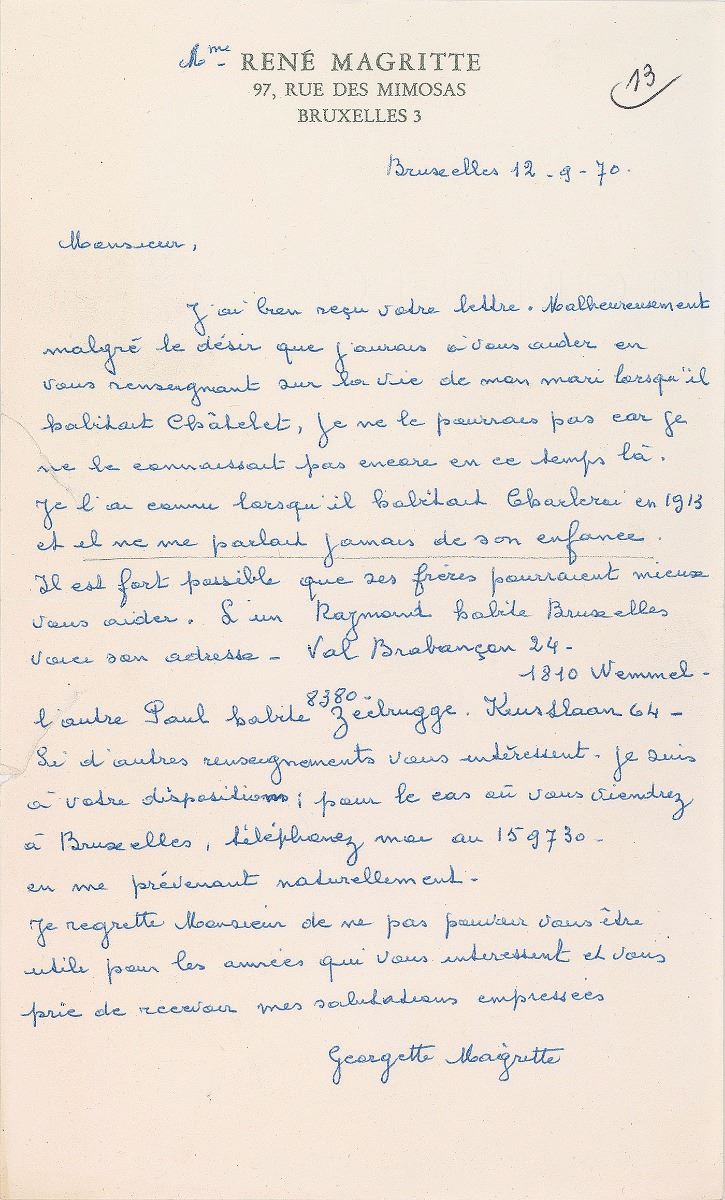 Mme RENÉ MAGRITTE
97, RUE DES MIMOSAS
BRUXELLES 3
13
Bruxelles 12-9-70.
Monsieur,
J'ai bien reçu votre lettre. Malheureusement
malgré le désir que j'aurais à vous aider en
vous renseignant sur la vie de mon mari lorsqu'il
habitait Châtelet, je ne le pourrais pas car je
ne le connaissait pas encore en ce temps là.
Je l'ai connu lorsqu'il habitait Charleroi en 1913
et il ne me parlait jamais de son enfance.
Il est fort possible que ses frères pourraient mieux
vous aider. L'un Raymond habite Bruxelles
voici son adresse - Val Brabançon 24-
1810 Wemmel-
l'autre Paul habite 8380- Zeebrugge. Kustlaan 64-
Si d'autres renseignements vous intéressent. je suis
à votre disposition; pour le cas où vous viendrez
à Bruxelles, téléphonez moi au 159730-
en me prévenant naturellement-
Je regrette Monsieur de ne pas pouvoir vous être
utile pour les années qui vous intéressent et vous
prie de recevoir mes salutations empressées
Georgette Magritte